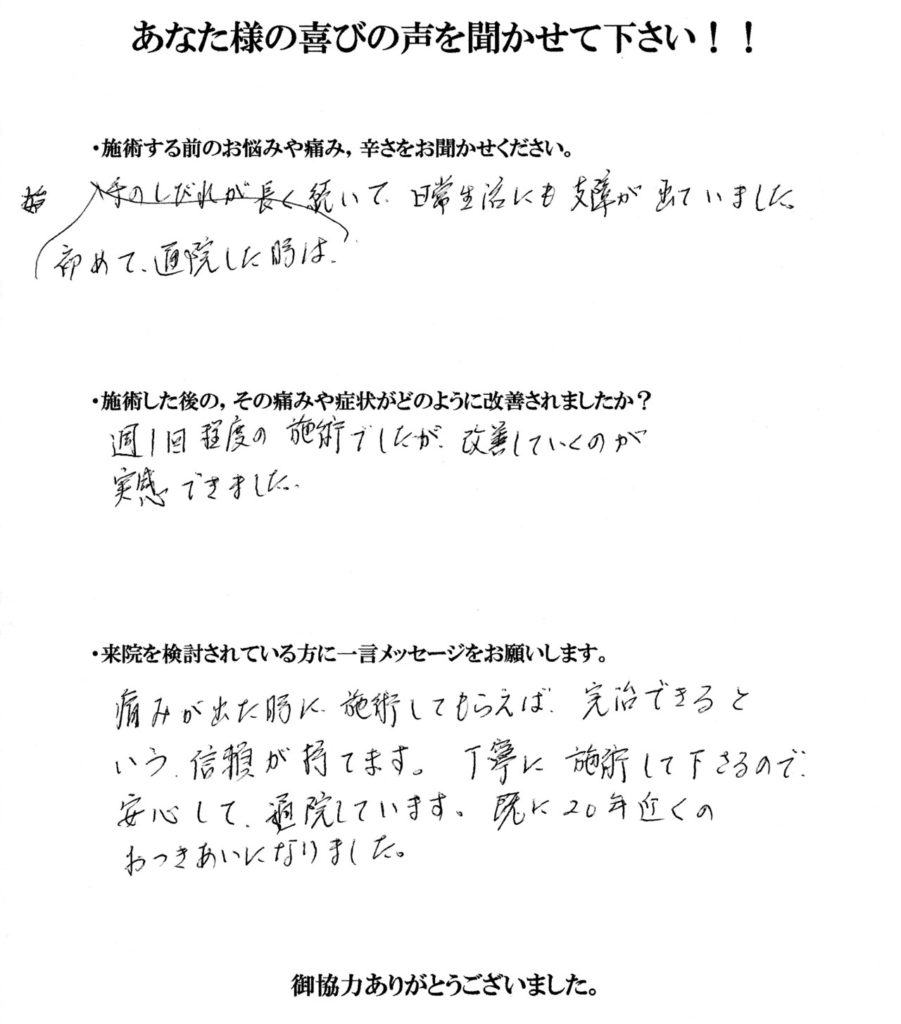 あなた様の喜びの声を聞かせて下さい！！
・施術する前のお悩みや痛み，辛さをお聞かせください。
手のしびれが長く続いて、日常生活にも支障が出ていました。
初めて、通院した時は、
・施術した後の，その痛みや症状がどのように改善されましたか？
週1回程度の施術でしたが、改善していくのが
実感できました。
・来院を検討されている方に一言メッセージをお願いします。
痛みが出た時に、施術してもらえば、完治できると
いう、信頼が持てます。丁寧に施術して下さるので、
安心して、通院しています。既に20年近くの
おつきあいになりました。
御協力ありがとうございました。